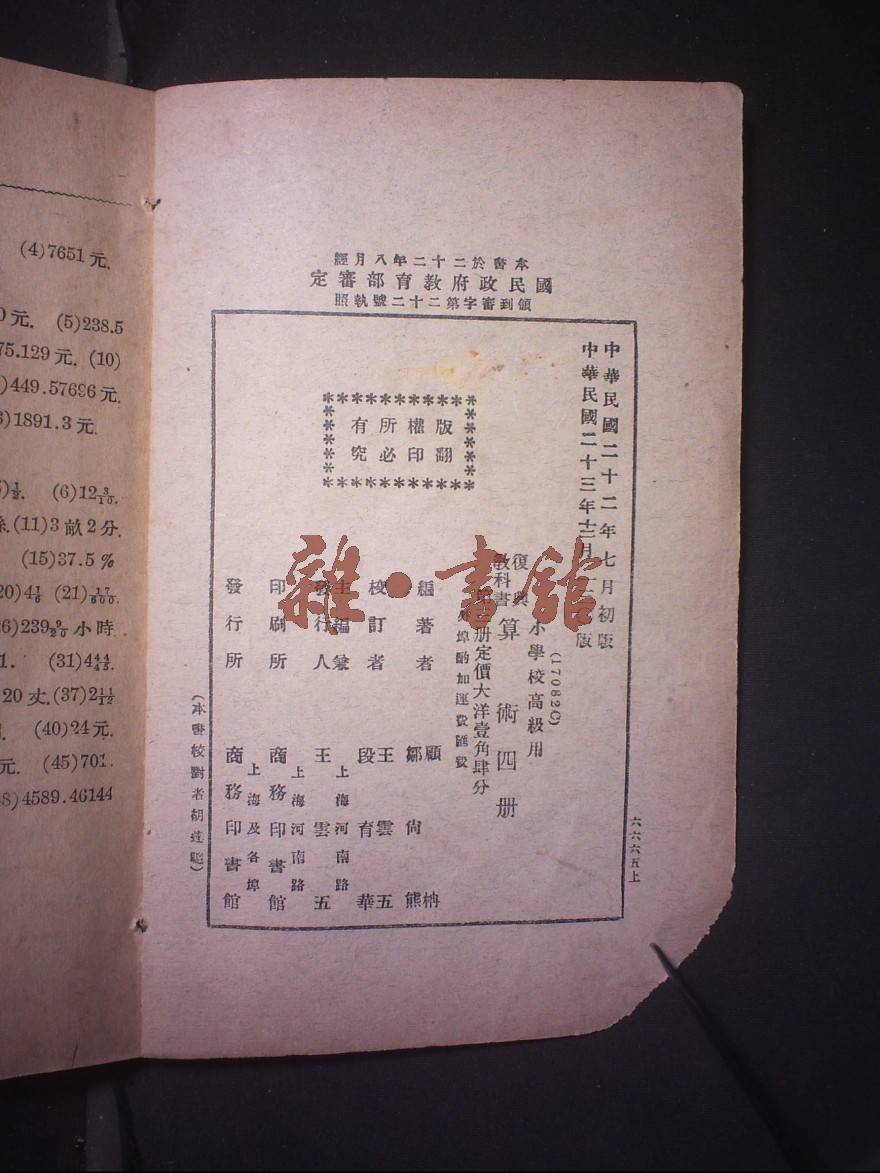 (4)7651元.
0元. (5)238.5
75.129元. (10)
)449.57696元.
)1891.3元.
(6)12 3/10.
(11)3畝2分.
(15)37.5%
20)4 1/6 (21)
26)239 9/20小時
1. (31)4 44/45.
20丈.(37)2 11/12
(40)24元.
元. (45)701.
8)4589.46144
本書於二十二年八月經
國民政府教育部審定
領到審字第二十二號執照
中華民國二十二年七月初版
中華民國二十三年十二月
版
版權所有
翻印必究
(17082C)
小學校高級用
復興
教科書
算術四册
册定價大洋壹角肆分
外埠酌加運費匯費
編著者
顧
枏
鄒尚熊
校訂者
王雲五
段育華
主編兼
發行人
王雲五
上海河南路
印刷所
商務印書館
上海河南路
發行所
商務印書館
上海及各埠
(本書校對者胡達聰)
六六六五上
雜·書館